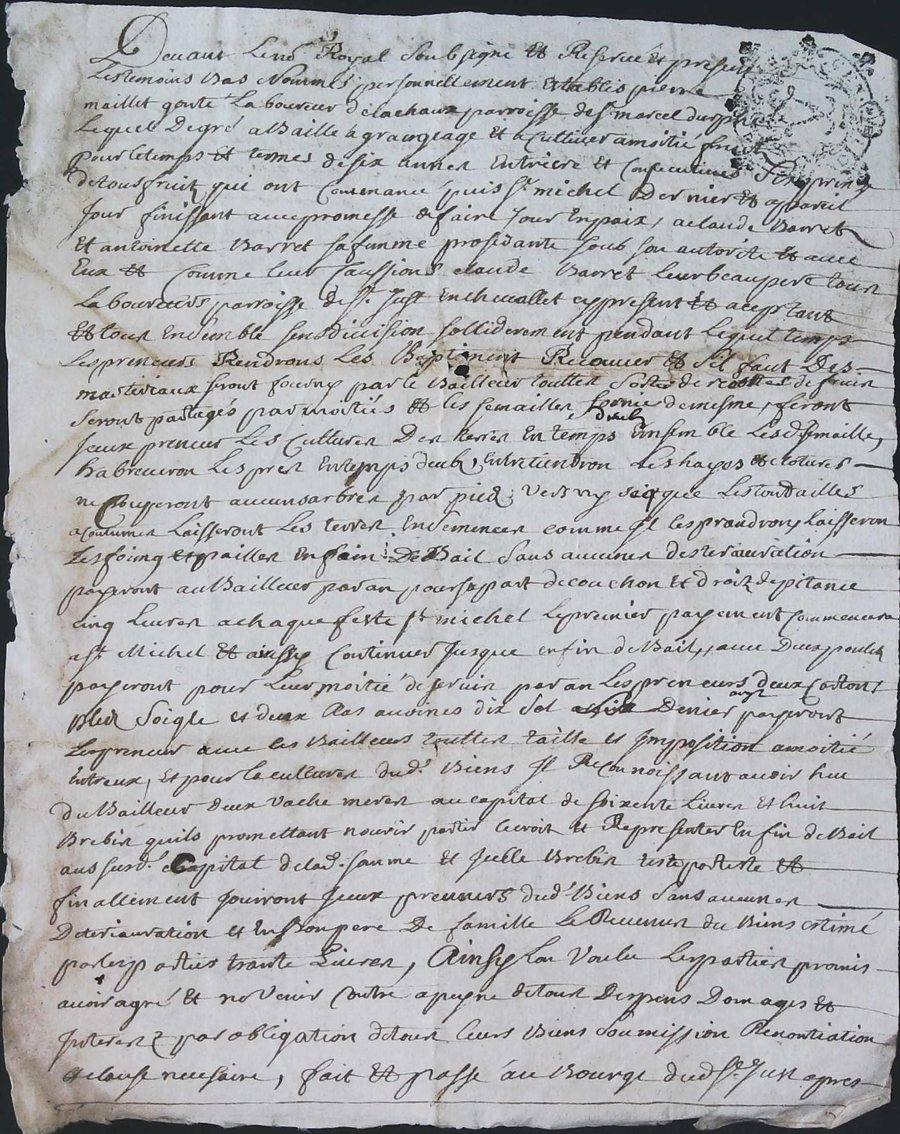 Devant Le no.re Royal Soubsigné et Reservé et presens
Les temoins Bas Nommés personnellement Establis pierre
maillet gonte Laboureur delachaux parroisse de st marcel durphé
Lequel De gré a Baillé a grangeage et a Cultiver amoitié fruit
pour le temps et termes de six année Entriere et Consecutives
de tous fruit qui ont Commancé puis st michel Dernier et a pareil
Jour finissant avec promesse de faire Jouir En paix, a claude Barret
Et antoinette Barret sa femme procedante sous son autorité et avec
Eux et Comme leur Caussions claude Barret Leur beaupere tous
Laboureurs parroisse de st Just En chevallet cy present et aceptant
et tous Ensemble sens division sollideremt pendant Lequel temps
Les preneurs Rendrons Les Baptiment Recouvert et s'il faut Des
materiaux seront fourny par le Bailleur touttes sortes de
seront partagés par moitiés et les semailles fornie demesme, feront
d'iceux
Jceux preneur Les Cultures Des terres En temps Ensemble Les semaille,
habreuveron Les pres En temps deub, Entretiendron Les hayes et clotures
ne Couperont aucuns arbres par pied, verd ny secq que Les tondailles
acoutumer Laisseront Les terres Ensemencer comme Jl les prandrons Laisseron
Les foing et pailles En fain De Bail sans aucunes desterauration
payeront au Bailleur par an pour sa part de couchon et droit de pitance
cinq Livres a chaque feste st michel Le premier payement Commencera
a st Michel et ainssy Continuer Jusque en fin de Bail, avec Deux poulets
payeront pour Leur moitié de servin par an Les preneurs deux
Bled Soigle et deux Ras avoines dix sol Denier argt payeront
Les preneur avec les Bailleurs touttes taille et Jmposition amoitié
Entreux, Et pour la cultures dud. Biens Jl Reconnoissant avoir heu
du Bailleur deux vache meres au capital de soixente Livres Et huit
Brebis quils promettant nourir partir le croit et Representer En fin de Bail
au susd. Capital delad. somme et Jcelle Brebis teste par teste et
finallement Jouiront Jceux preneurs dud. Biens Sans aucunes
Deteriauration et En Bon pere De famille Le Revenus du Biens estimé
par les parties trante Livres, Ainsy Lon Voulu Les parties promis
avoir agré et ne Venir Contre a peyne de tous Despens Domages et
Jnterest par obligation de tous leurs Biens Soumission Renontiation
et clause necessaire, fait et passé au Bourge dud. st Just apres